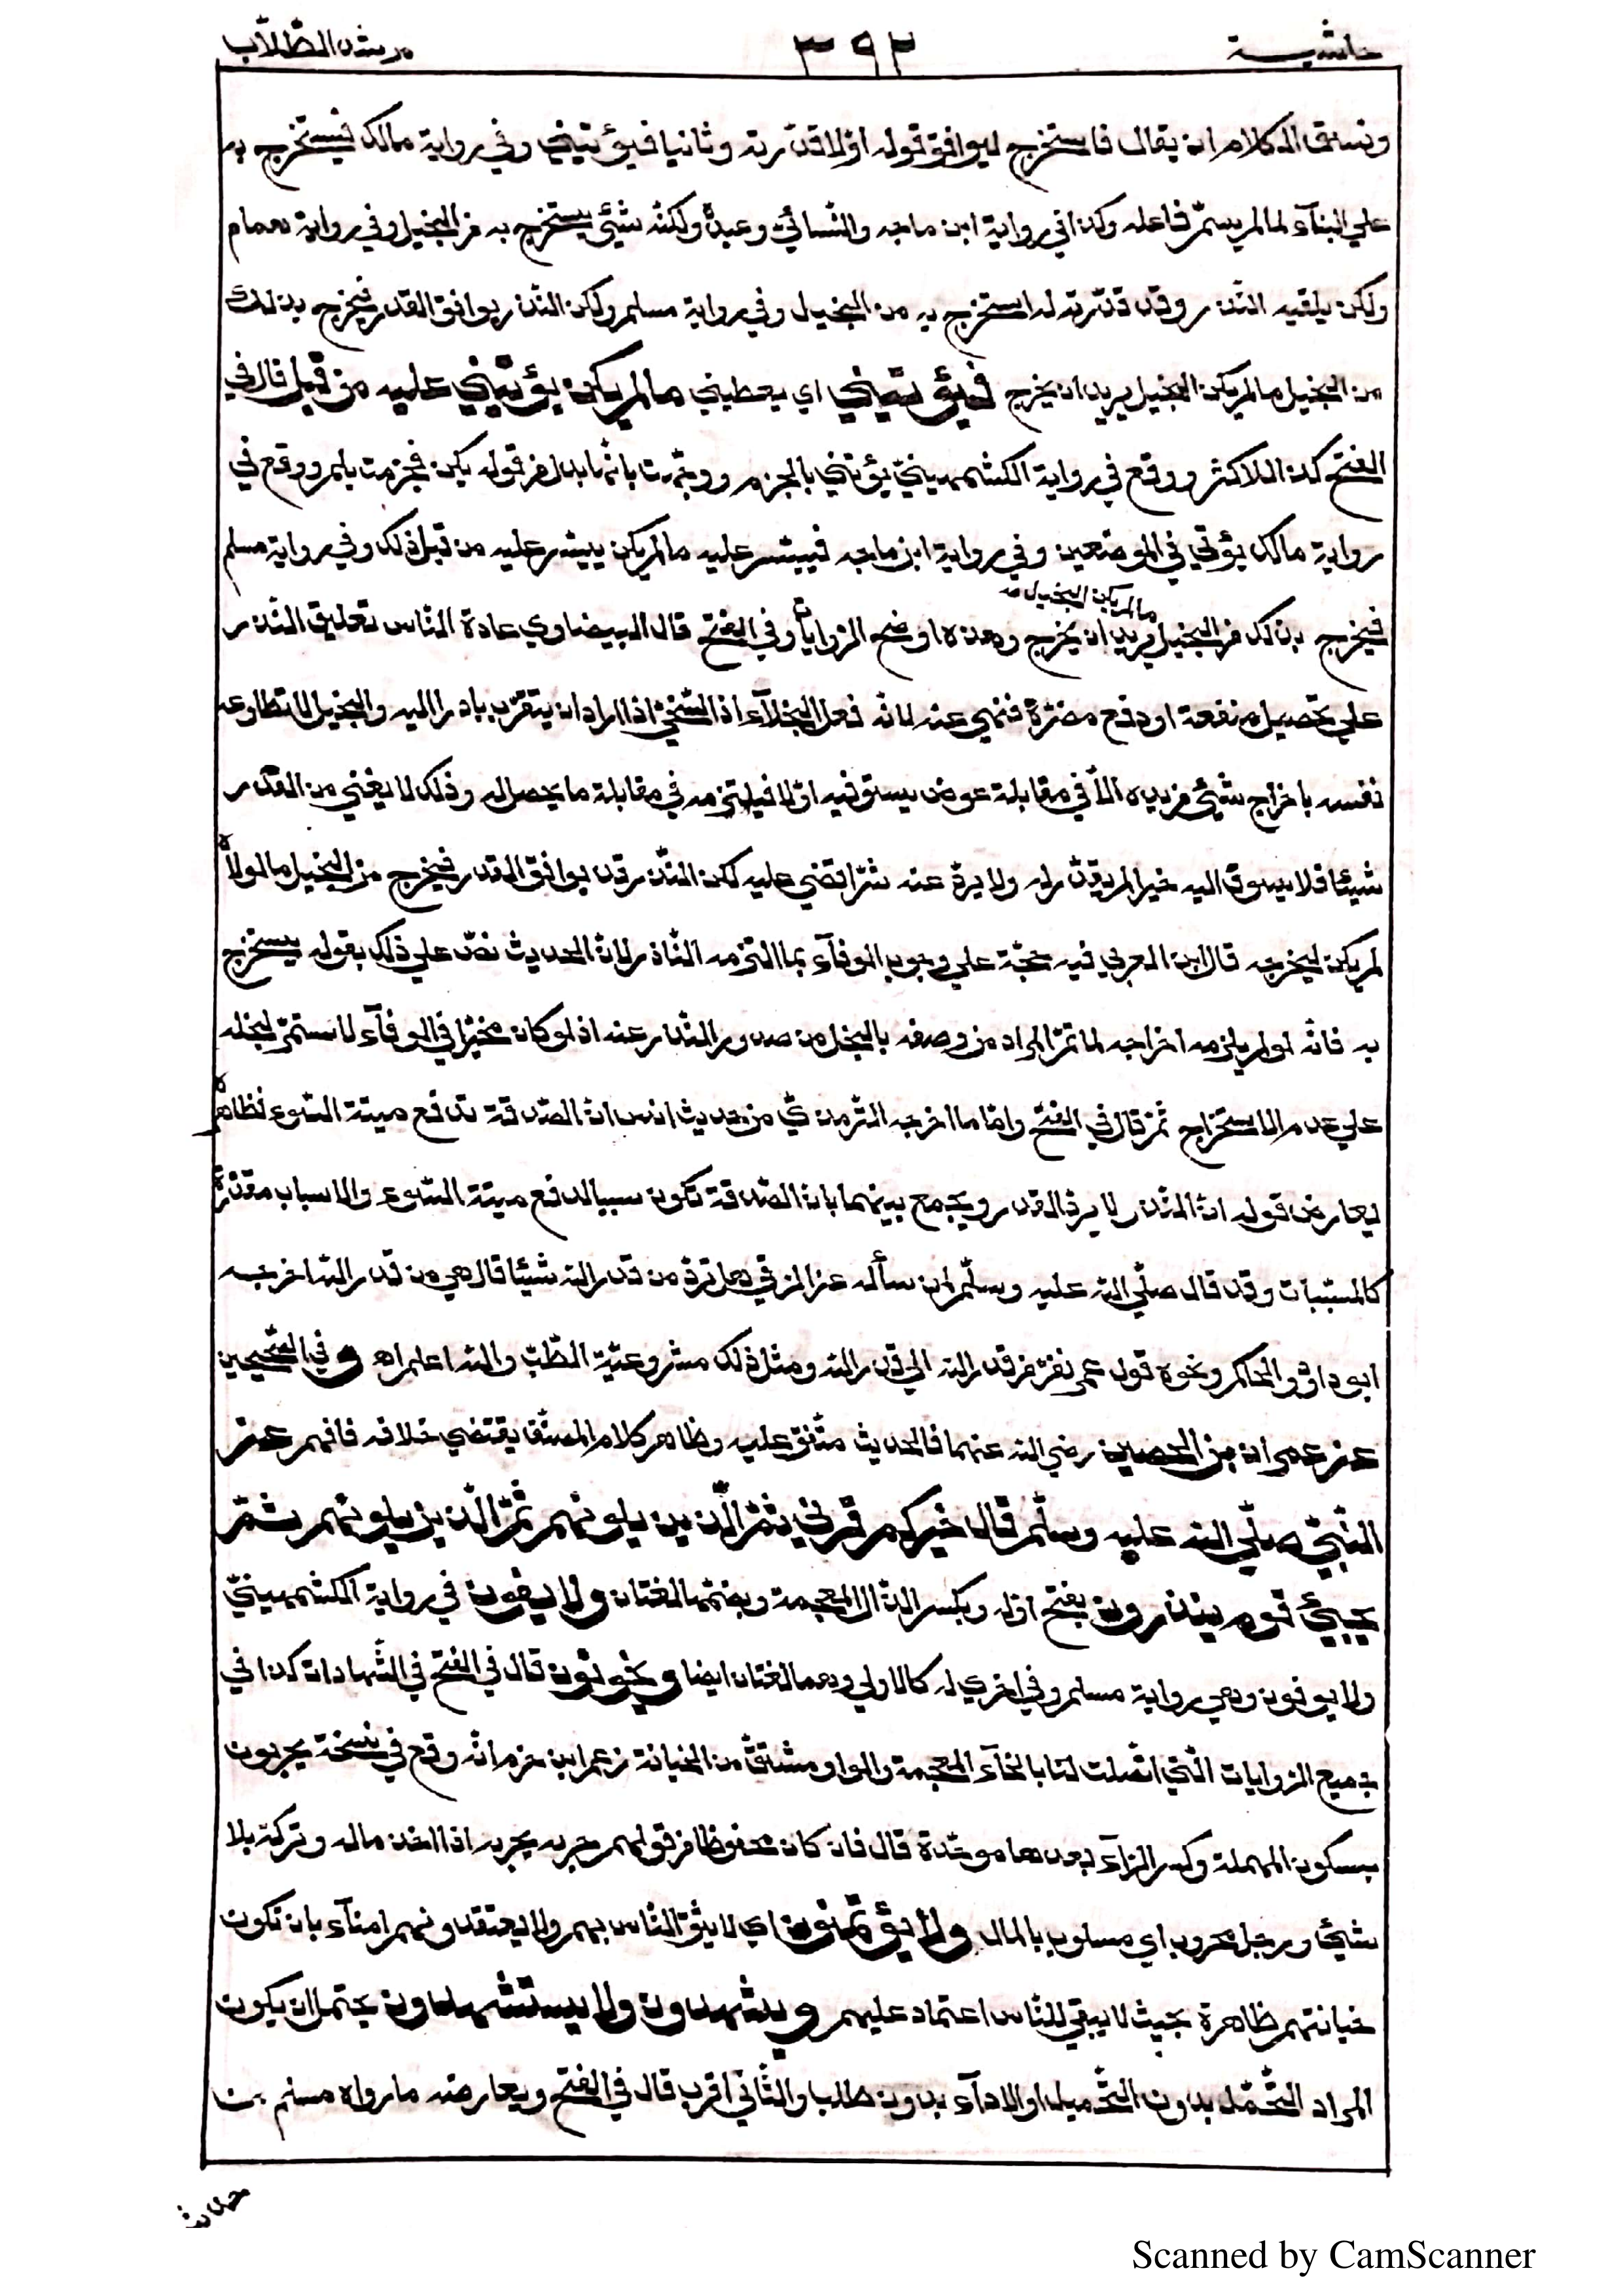 حاشية ٣٩٢ مرشد الطّلّاب
ونسق الكلام ان يقال فاستخرج ليوافق قوله اوّلا قدّرته وثانيا فيؤتيني وفي رواية مالك فيستخرج به
علي البنآء لما لم يسمّ فاعله وكذا في رواية ابن ماجه والنّسائيّ وعبدة ولكنّه شيئ يستخرج به من البخيل وفي رواية همام
ولكن يلقيه النّذر وقد قدّرته له استخرج به من البخيل وفي رواية مسلم ولكن النّذر يوافق القدر فيخرج بذلك
من البخيل ما لم يكن البخيل يريد ان يخرج فيؤتيني اي يعطيني ما لم يكن يؤتيني عليه من قبل قال في
الفتح كذا للاكثر ووقع في رواية الكشميهينيّ يؤتني بالجزم ووجّهت بانّها بدل من قوله يكن فجزمت بلم ووقع في
رواية مالك يؤتي في الموضعين وفي رواية ابن ماجه فييسّر عليه ما لم يكن ييسّر عليه من قبل ذلك وفي رواية مسلم
ما لم يكن البخيل
فيخرج بذلك من البخيل يريد ان يخرج وهذه اوضح الرّوايات وفي الفتح قال البيضاوي عادة النّاس تعليق النّذر
علي تحصيل منفعة او دفع مضرّة فنهي عنه لانّه فعل البخلآء اذ السّخيّ اذا اراد ان يتقرّب بادر اليه والبخيل لا تطاوعه
نفسه باخراج شيئ من يده الّا في مقابلة عوض يستوفيه اوّلا فيلتزمه في مقابلة ما يحصل له وذلك لا يغني من القدر
شيئا فلا يسوق اليه خيرا لم يقدّر له ولا يردّ عنه شرّا قضي عليه لكن النّذر قد يوافق القدر فيخرج من البخيل ما لولاه
لم يكن ليخرجه قال ابن العربي فيه حجّة علي وجوب الوفآء بما التزمه النّاذر لانّ الحديث نصّ علي ذلك بقوله يستخرج
به فانّه لو لم يلزمه اخراجه لما تمّ المراد من وصفه بالبخل من صدور النّذر عنه اذ لو كان مخيّرا في الوفآء لاستمرّ لبخله
علي عدم الاستخراج ثمّ قال في الفتح وامّا ما اخرجه التّرمذيّ من حديث انس انّ الصّدقة تدفع ميتة السّوء فظاهره
يعارض قوله انّ النّذر لا يردّ القدر ويجمع بينهما بانّ الصّدقة تكون سببا لدفع ميتة السّوء والاسباب مقدّرة
كالمسبّبات وقد قال صلّي الله عليه وسلّم لمن سأله عن الرّقي هل تردّ من قدر الله شيئا قال هي من قدر الله اخرجه
ابو داوٗد والحاكم ونحوه قول عمر نفرّ من قدر الله الي قدر الله ومثل ذلك مشروعيّة الطّبّ والله اعلم اه وفي الصّحيحين
عن عمران بن الحصين رضي الله عنهما فالحديث متّفق عليه وظاهر كلام المصنّف يقتضي خلافه فافهم عن
النّبيّ صلّي الله عليه وسلّم قال خيركم قرني ثمّ الّذين يلونهم ثمّ الّذين يلونهم ثمّ
يجيئ قوم ينذرون بفتح اوّله وبكسر الذّال المعجمة وبضمّها لغتان ولا يفون في رواية الكشميهينيّ
ولا يوفون وهي رواية مسلم وفي اخري له كالاولي وهما لغتان ايضا ويخونون قال في الفتح في الشّهادات كذا في
جميع الرّوايات الّتي اتّصلت لنا بالخآء المعجمة والواو مشتقّ من الخيانة زعم ابن حزم انّه وقع في نسخة يحربون
بسكون المهملة وكسر الرّآء بعدها موحّدة قال فان كان محفوظا فمن قولهم حربه يحربه اذا اخذ ماله وتركه بلا
شيئ ورجل محروب اي مسلوب المال ولا يؤتمنون اي لا يثق النّاس بهم ولا يعتقدونهم امنآء بان تكون
خيانتهم ظاهرة بحيث لا يبقي للنّاس اعتماد عليهم ويشهدون ولا يستشهدون يحتمل ان يكون
المراد التّحمّل بدون التّحميل او الادآء بدون طلب والثّاني اقرب قال في الفتح ويعارضه ما رواه مسلم من
Scanned by CamScanner